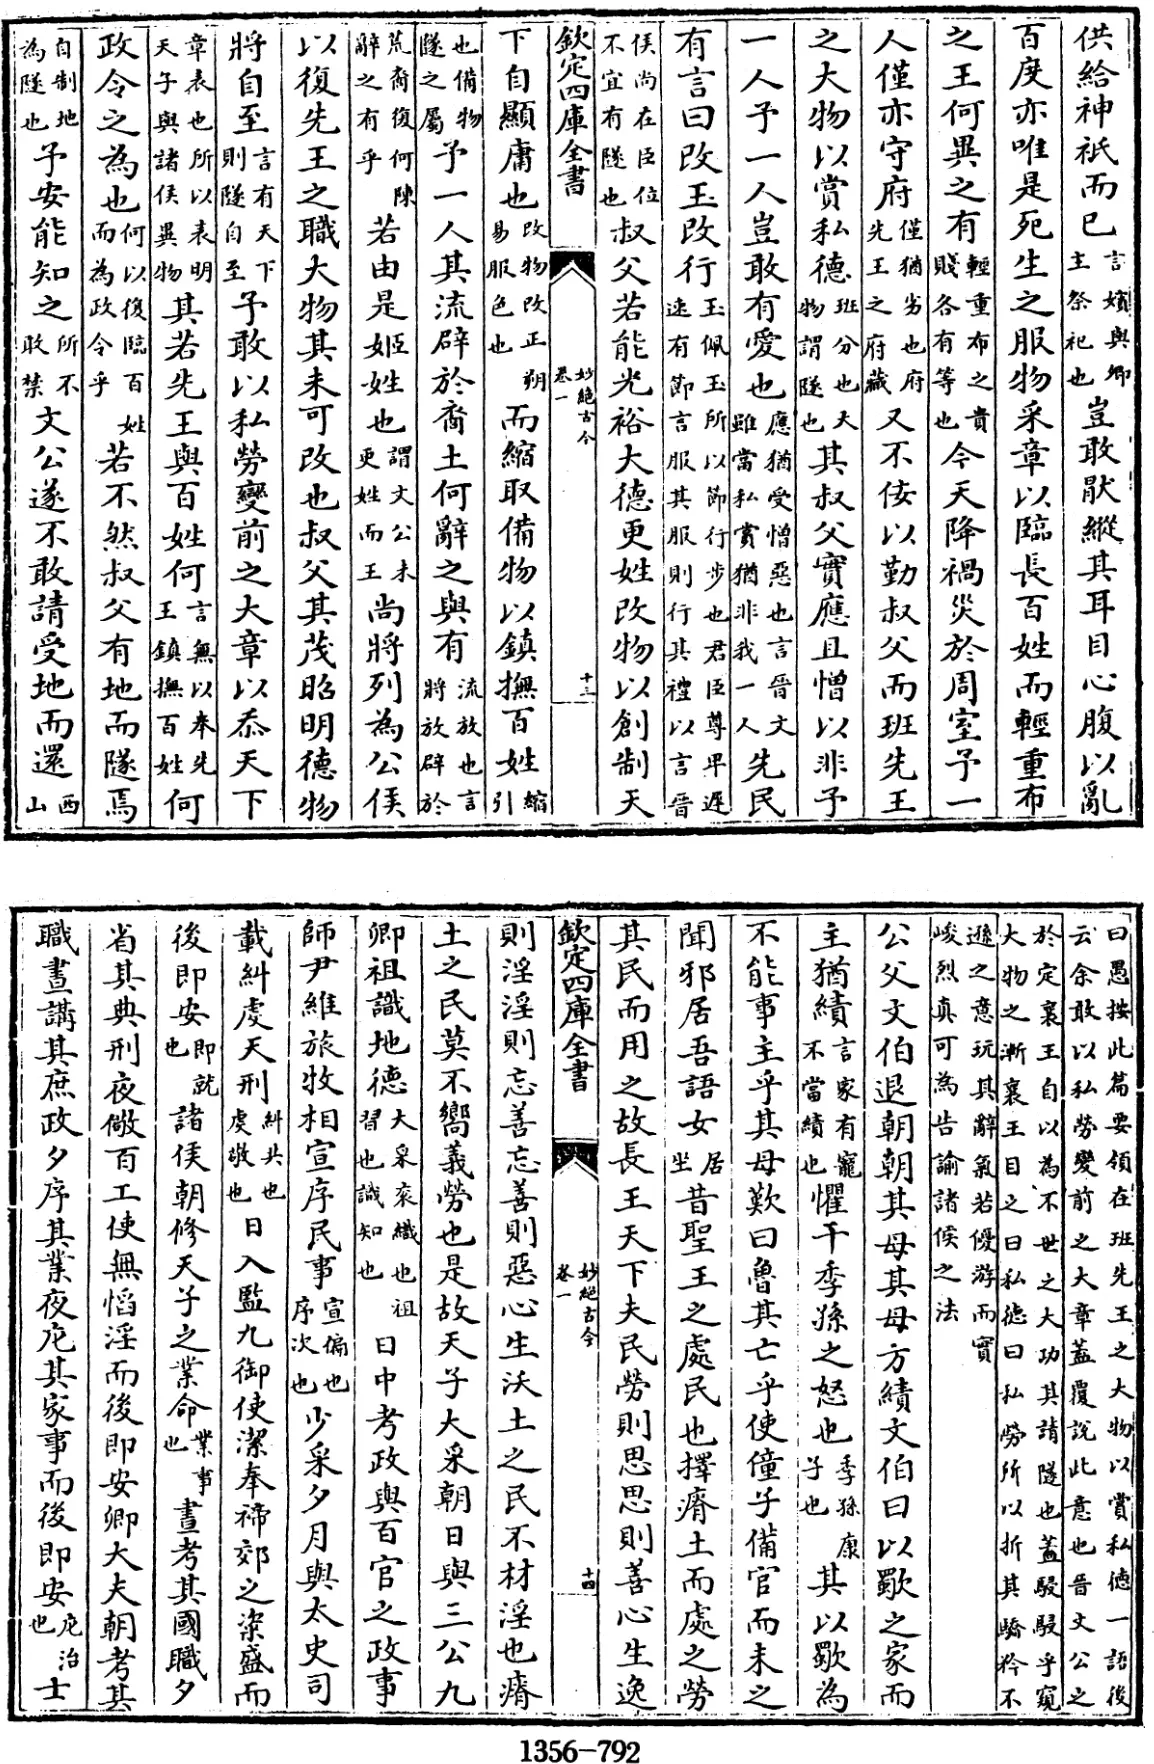 供給神祇而已言嬪與卿主祭祀也豈敢猒縱其耳目心腹以亂
百度亦唯是死生之服物采章以臨長百姓而輕重布
之王何異之有輕重布之貴賤各有等也今天降禍災於周室予一
人僅亦守府僅猶劣也府先王之府藏又不佞以勤叔父而班先王
之大物以賞私德班分也大物謂隧也其叔父實應且憎以非予
一人予一人豈敢有愛也應猶受憎惡也言晉文雖當私賞猶非我一人先民
有言曰改玉改行玉佩玉所以節行步也君臣尊卑遲速有節言服其服則行其禮以言晉
侯尚在臣位不宜有隧也叔父若能光裕大德更姓改物以創制天
欽定四庫全書
妙絕古今
卷一
十三
下自顯庸也改物改正朔易服色也而縮取備物以鎮撫百姓縮引
也備物隧之屬予一人其流辟於裔土何辭之與有流放也言將放辟於
荒裔復何陳辭之有乎若由是姬姓也謂文公未更姓而王尚將列為公侯
以復先王之職大物其未可改也叔父其茂昭明德物
將自至言有天下則隧自至予敢以私勞變前之大章以忝天下
章表也所以表明天子與諸侯異物其若先王與百姓何言無以奉先王鎮撫百姓何
政令之為也何以復臨百姓而為政令乎若不然叔父有地而隧焉
自制地為隧也予安能知之所不敢禁文公遂不敢請受地而還西山
曰愚按此篇要領在班先王之大物以賞私德一語後
云余敢以私勞變前之大章蓋覆說此意也晉文公之
於定襄王自以為不世之大功其請隧也蓋駸駸乎窺
大物之漸襄王目之曰私德曰私勞所以折其驕矜不
遜之意玩其辭氣若優游而實
峻烈真可為告諭諸侯之法
公父文伯退朝朝其母其母方績文伯曰以歜之家而
主猶績言家有寵不當績也懼干季孫之怒也季孫康子也其以歜為
不能事主乎其母歎曰魯其亡乎使僮子備官而未之
聞邪居吾語女居坐昔聖王之處民也擇瘠土而處之勞
其民而用之故長王天下夫民勞則思思則善心生逸
欽定四庫全書
妙絕古今
卷一
十四
則淫淫則忘善忘善則惡心生沃土之民不材淫也瘠
土之民莫不嚮義勞也是故天子大采朝日與三公九
卿祖識地德大采衮織也祖習也識知也日中考政與百官之政事
師尹維旅牧相宣序民事宣徧也序次也少采夕月與太史司
載糾虔天刑糾共也虔敬也日入監九御使潔奉禘郊之粢盛而
後即安即就也諸侯朝修天子之業命業事也晝考其國職夕
省其典刑夜儆百工使無慆淫而後即安卿大夫朝考其
職晝講其庶政夕序其業夜庀其家事而後即安庀治也士
1356-792